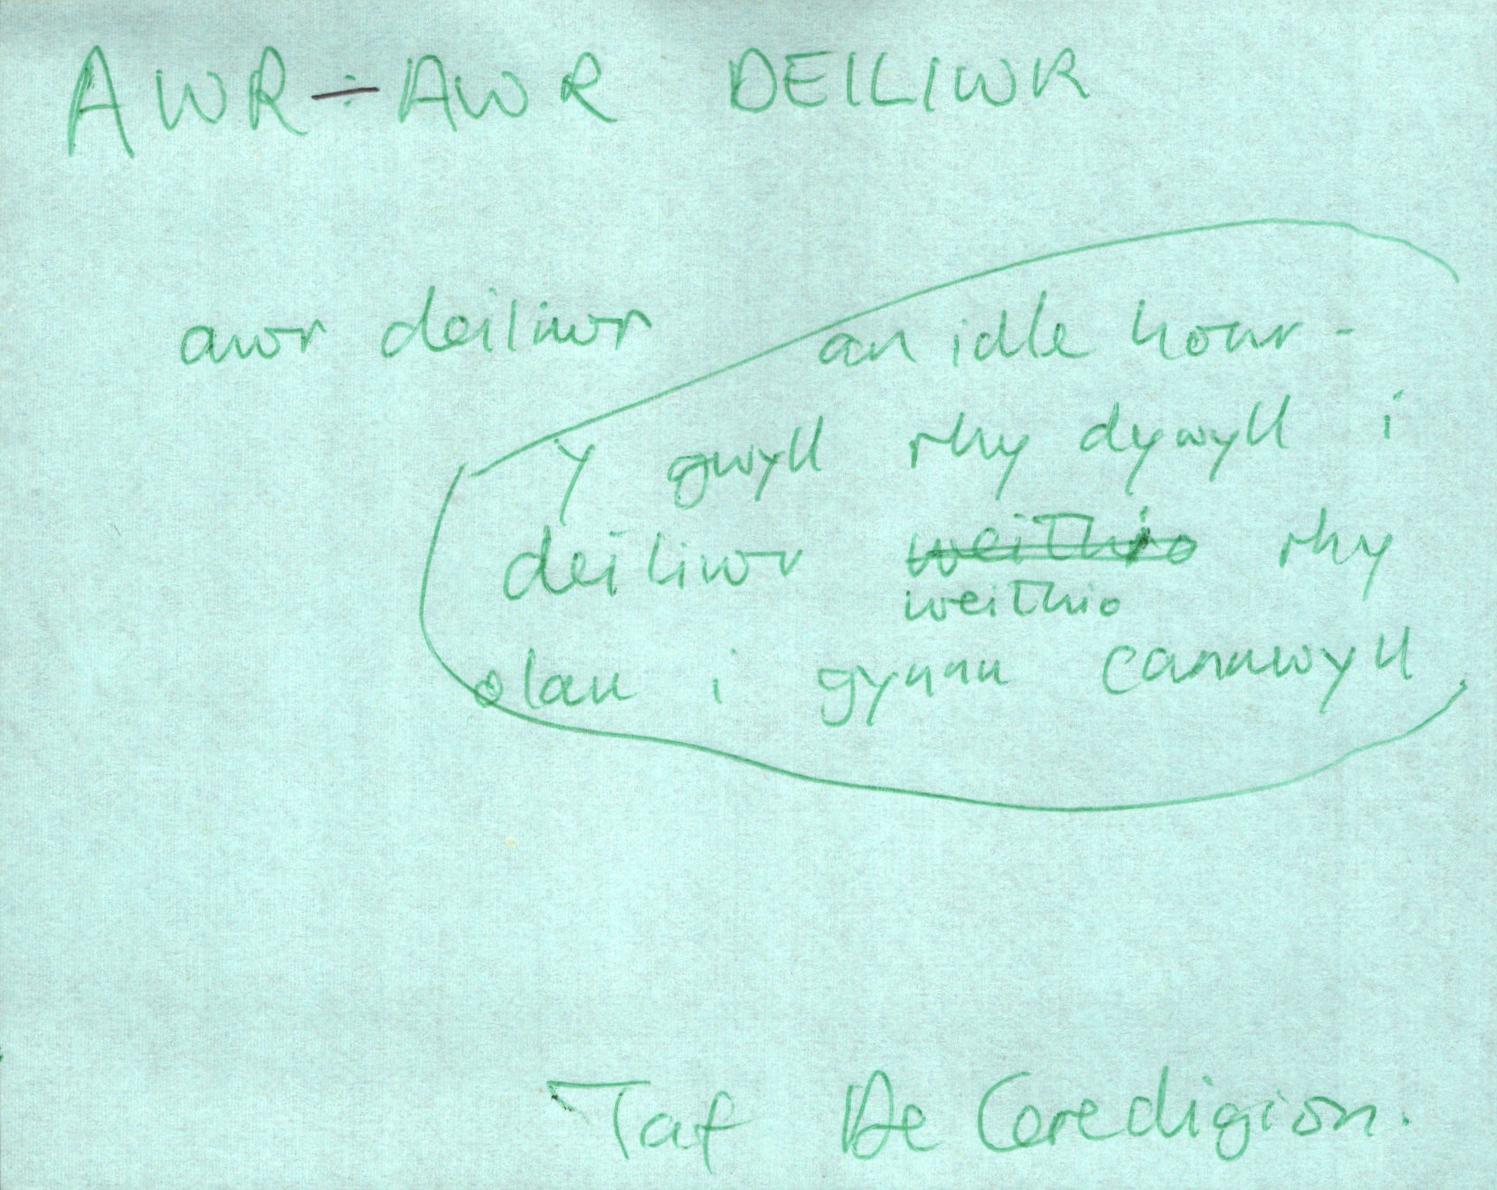 AWR-AWR DEILIWR
awr deiliwr an idle hour-
y gwyll rhy dywyll i
deiliwr weithio rhy
weithio
olau i gynnu cannwyll.
Taf De Ceredigion.